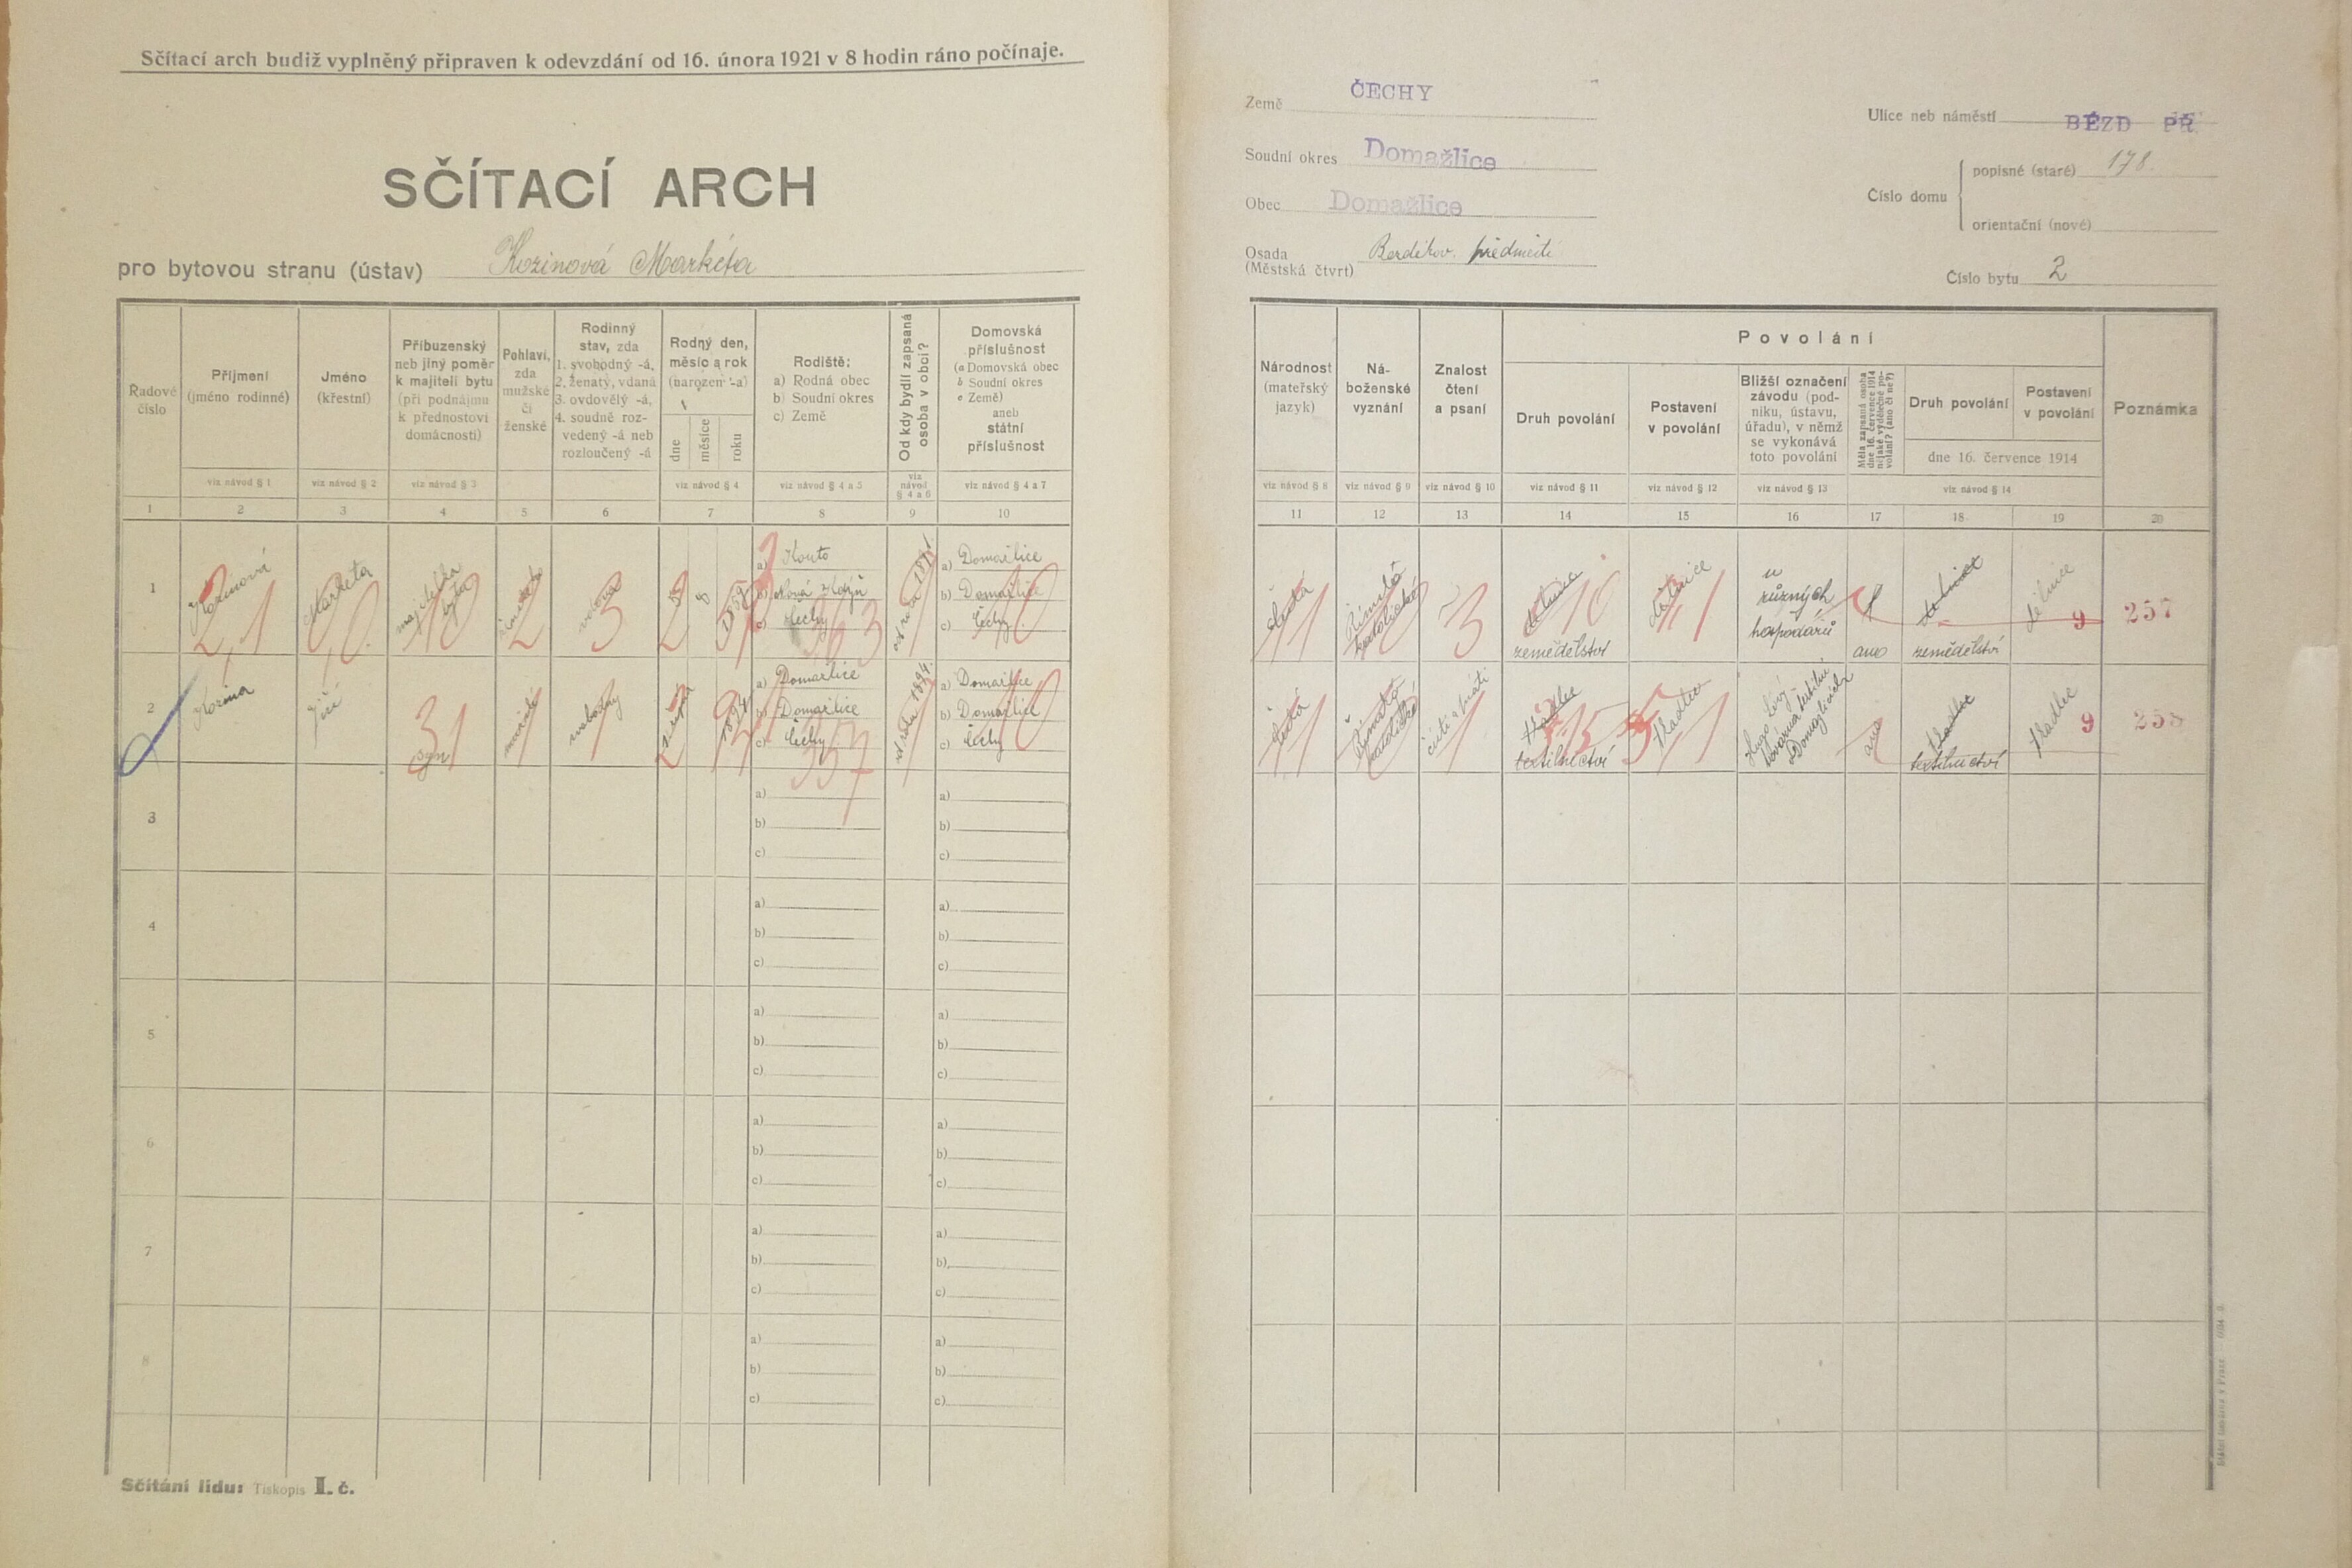 Sčítací arch budiž vyplněný připraven k odevzdání od 16. února 1921 v 8 hodin ráno počínaje.
SČÍTACÍ ARCH
pro bytovou stranu (ústav) Kozinová Markéta
Země ČECHY
Soudní okres Domažlice
Obec Domažlice
Osada
(Městská čtvrť) předměstí
Ulice neb náměstí BĚZD PŘ.
Číslo domu
popisné (staré) 178.
orientační (nové)
Číslo bytu 2
Řadové
číslo
Příjmení
(jméno rodinné)
Jméno
(křestní)
Příbuzenský
neb jiný poměr
k majiteli bytu
(při podnájmu
k přednostovi
domácnosti)
Pohlaví,
zda
mužské
či
ženské
Rodinný
stav, zda
1. svobodný -á,
2. ženatý, vdaná
3. ovdovělý -á,
4. soudně roz-
vedený -á neb
rozloučený -á
Rodný den,
měsíc a rok
(narozen -a)
dne
měsíce
roku
Rodiště:
a) Rodná obec
b) Soudní okres
c) Země
Od kdy bydlí zapsaná
osoba v obci?
Domovská
příslušnost
(a Domovská obec
b Soudní okres
c Země)
aneb
státní
příslušnost
viz návod § 1
viz návod § 2
viz návod § 3
viz návod § 4
viz návod § 4 a 5
viz
návod
§ 4 a 6
viz návod § 4 a 7
1 2 3 4 5 6 7 8 9 10
Národnost
(mateřský
jazyk)
Ná-
boženské
vyznání
Znalost
čtení
a psaní
Povolání
Druh povolání
Postavení
v povolání
Bližší označení
závodu (pod-
niku, ústavu,
úřadu), v němž
se vykonává
toto povolání
Měla zapsaná osoba
dne 16. července 1914
nějaké výdělečné po-
volání? (ano či ne?)
Druh povolání
Postavení
v povolání
dne 16. července 1914
Poznámka
viz návod § 8
viz návod § 9
viz návod § 10
viz návod § 11
viz návod § 12
viz návod § 13
viz návod § 14
11 12 13 14 15 16 17 18 19 20
1
Kozinová
Markéta
majitelka
bytu
2,1
0,0
10
2
vdova
3
2
8
1859
a) Kouto
b) Nová Kdyň
c) Čechy
363
a) Domažlice
b) Domažlice
c) Čechy
10
česká
11
Římsko
katolické
3
zemědělství
dělnice
u
různých
hospodářů
ano
zemědělství
dělnice
9
257
2
Kozina
Jiří
syn
31
mužské
1
svobodný
1
srpna
a) Domažlice
b) Domažlice
c) Čechy
357
od roku 1894
a) Domažlice
b) Domažlice
c) Čechy
10
11
Římsko
katolické
čísti a psáti
1
textilnictví
tkadlec
Domažlicích
ano
tkadlec
textilnictví
tkadlec
9
258
3
a)
b)
c)
a)
b)
c)
4
a)
b)
c)
a)
b)
c)
5
a)
b)
c)
a)
b)
c)
6
a)
b)
c)
a)
b)
c)
7
a)
b)
c)
a)
b)
c)
8
a)
b)
c)
a)
b)
c)
Sčítání lidu: Tiskopis I. č.